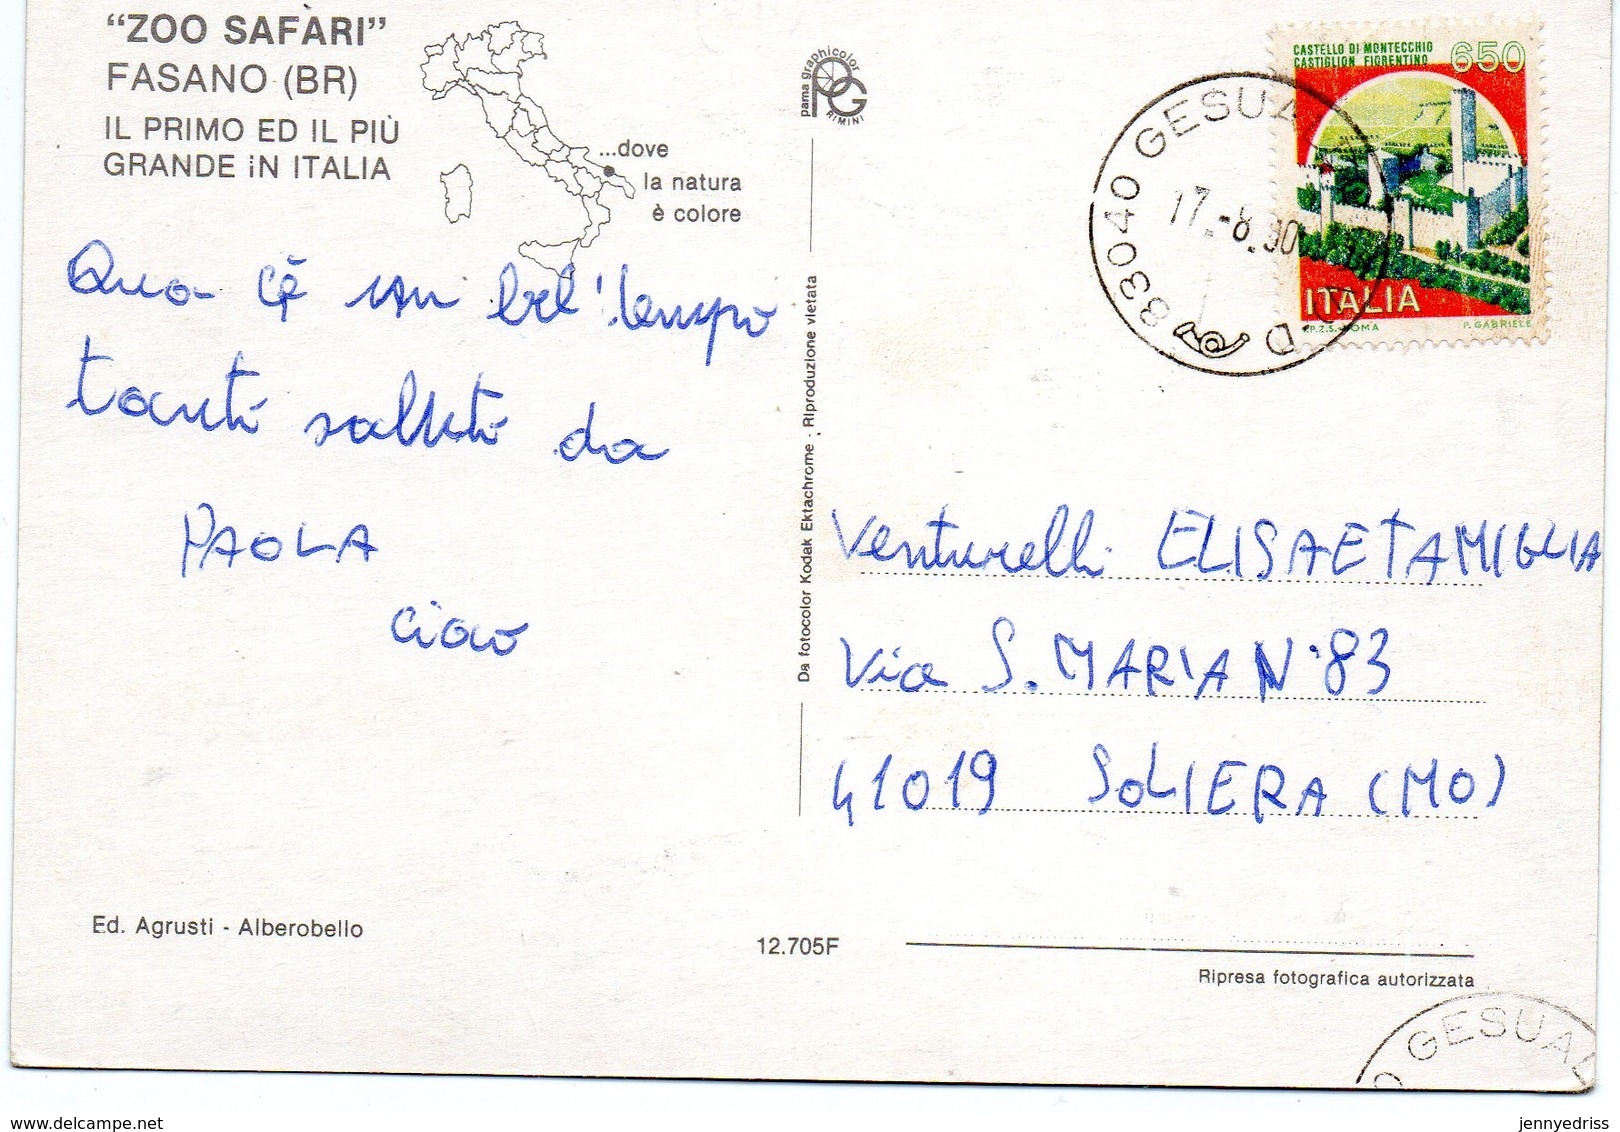 "ZOO SAFARI"
FASANO (BR)
IL PRIMO ED IL PIÙ
GRANDE iN ITALIA
...dove
la natura
è colore
pama graphicolor
PG
RIMINI
CASTELLO DI MONTECCHIO
CASTIGLION FIORENTINO
650
ITALIA
I.P.Z.S.-ROMA
P. GABRIELE
83040 GESUAL
17.-8.90
Qua c'è un bel tempo
tanti saluti da
PAOLA
ciao
Da fotocolor Kodak Ektachrome - Riproduzione vietata
Venturelli ELISAETAMIGLIA
Via S. MARIA N°83
41019 SOLIERA (MO)
Ed. Agrusti - Alberobello
12.705F
Ripresa fotografica autorizzata
GESUAL
jennyedriss